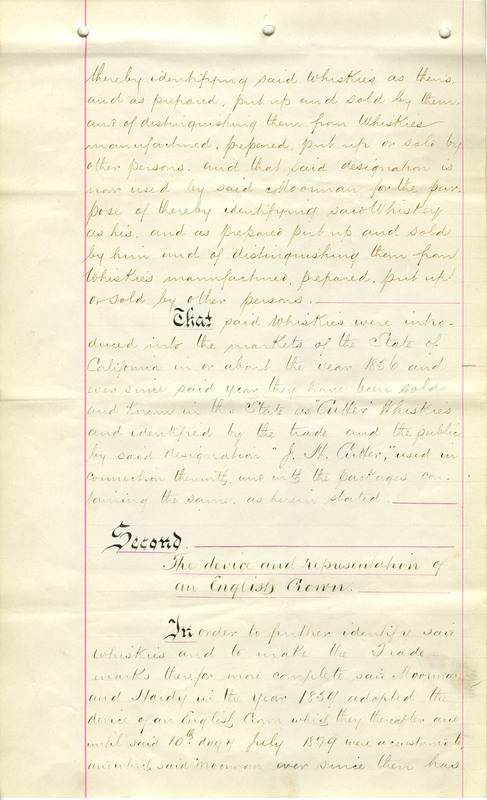 thereby identifying said Whiskies as theirs,
and as prepared, put up and sold by them
and of distinguishing them from Whiskies
manufactured, prepared, put up or sold by
other persons. and that said designation is
now used by said Moorman for the pur-
pose of thereby identifying said Whiskey
as his, and as prepared put up and sold
by him and of distinguishing them from
Whiskies manufactured, prepared, put up
or sold by other persons.
That said Whiskies were intro-
duced into the markets of the State of
California in or about the year 1856 and
ever since said year they have been sold
and known in this State as "Cutter" Whiskies
and identified by the trade and the public
by said designation "J. H. Cutter," used in
connection therewith, and with the packages con-
taining the same, as herein stated.
Second.
The device and representation of
an English Crown.
In order to further identify said
Whiskies and to make the Trade
marks therefor more complete said Moorman
and Hardy in the year 1859 adopted the
device of an English Crown which they thereafter and
until said 10th day of July 1879 were accustomed to
and which said Moorman ever since then has